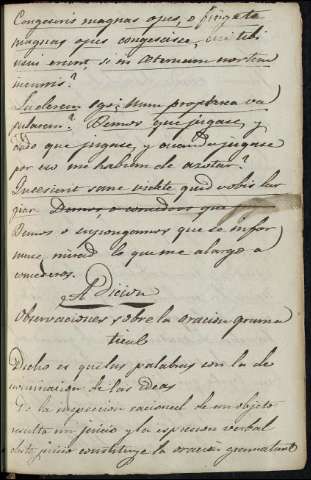 Congeuris magnas opes, o fingete
magnas opes congesisce, cui tibi
usui erunt, si in æternum moriturus
Luderem ego; num propterea va
pularem? Demos que jugase, y
dado que jugase, y cuando jugase
por eso me habían de azotar?
Inscierint sane videte quid vobis lar
giar Demos, o concedors que
Demos o supongamos que se infor
mune, mirad lo que me alargo a
concederos.
2ª Adicion
Observaciones sobre la oracion grama
tical
Dicho es que las palabras son la de
nominacion de las ideas
De la inspeccion racional de un objeto
resulta un juicio y la espresion verbal
de este juicio constituye la oracion gramatical